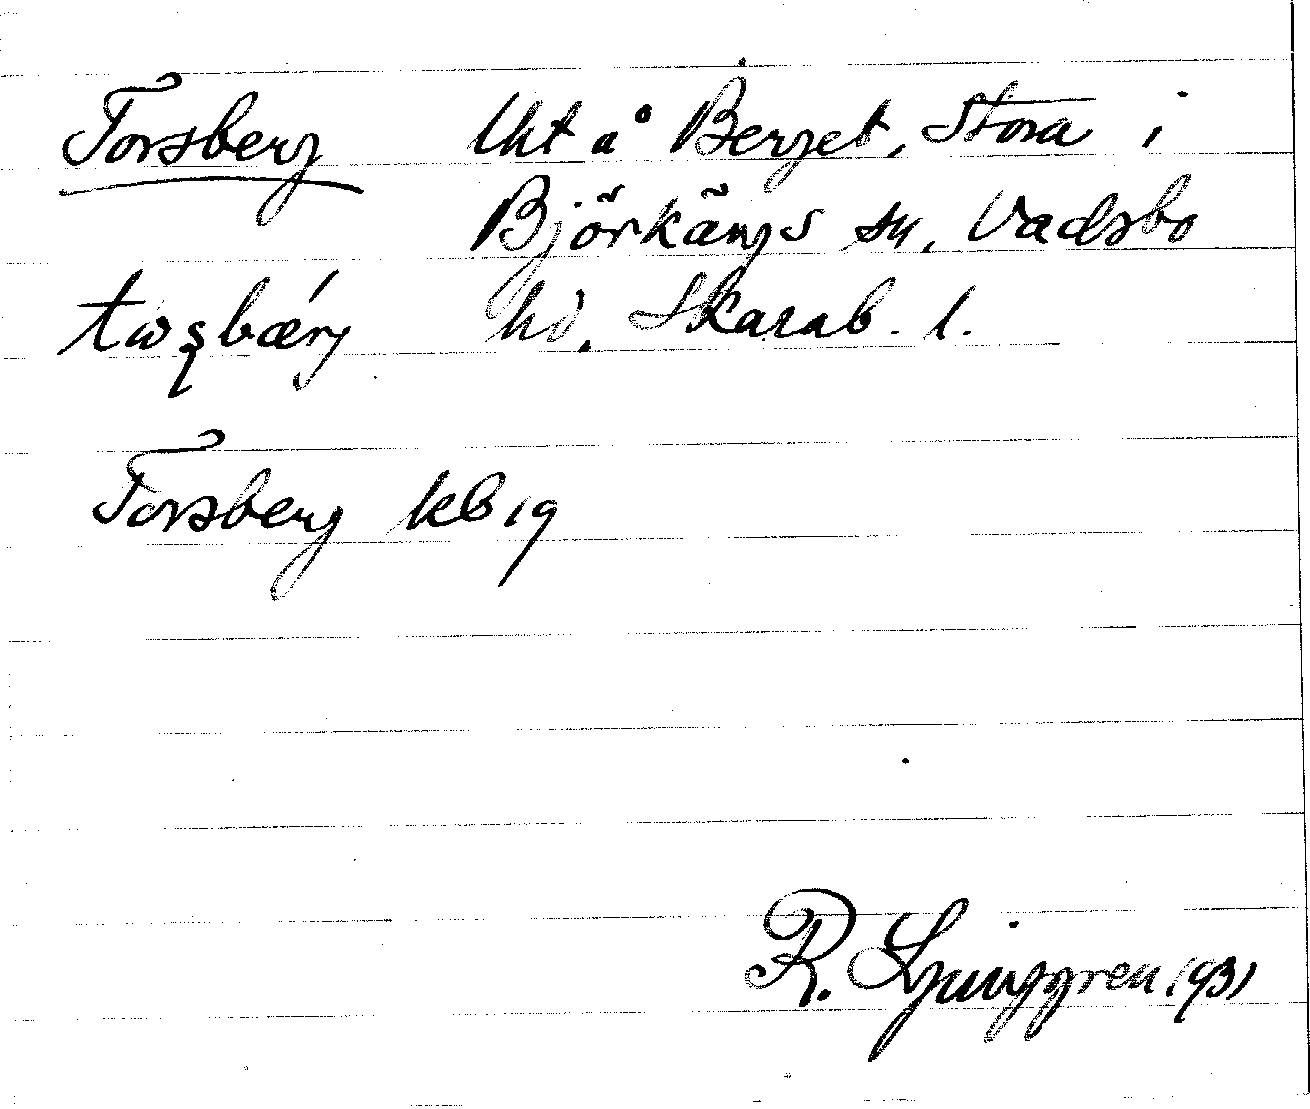 Torsberg Lht å Berget, Stora i
Björkängs sn, Vadsbo
hd. Skarab. l.
Torsberg kb 19
R. Ljunggren 1931